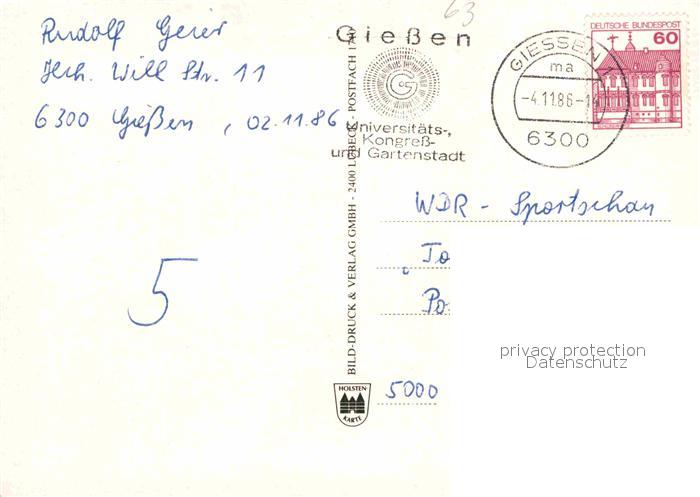 Rudolf Geier
Hch. Will Str. 11
6300 Gießen, 02.11.86
5
63
Gießen
Universitäts-,
Kongreß-
und Gartenstadt
GIESSEN 1
ma
-4.11.86-1
6300
DEUTSCHE BUNDESPOST
60
BILD-DRUCK & VERLAG GMBH - 2400 LÜBECK - POSTFACH
WDR - Sportschau
To
Po
5000
HOLSTEN-
KARTE
privacy protection
Datenschutz